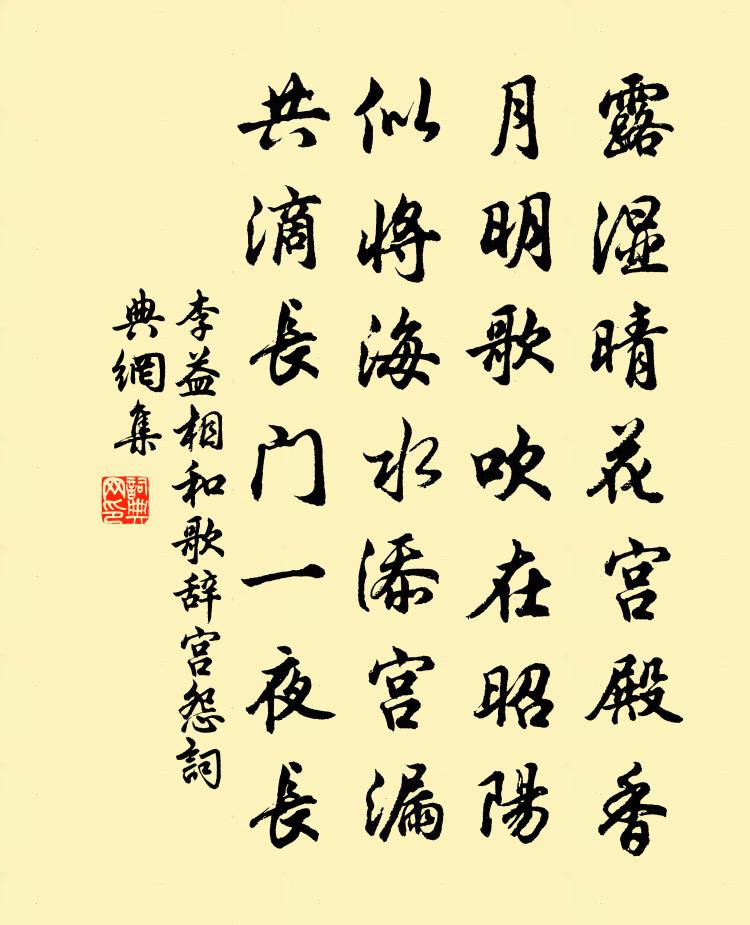 露湿晴花宫殿香
月明歌吹在昭陽
似将海水添宫漏
共滴長门一夜長
李益相和歌辞宫怨詞
典網集
詞典网印